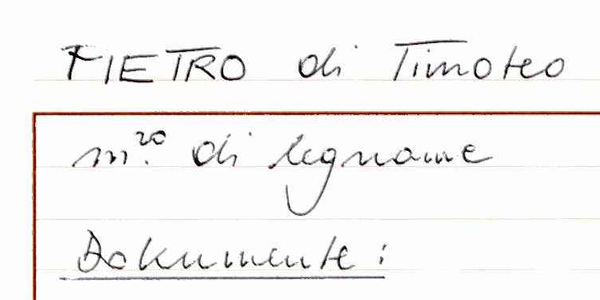 PIETRO di Timoteo
m.ro di legname
Dokumente: